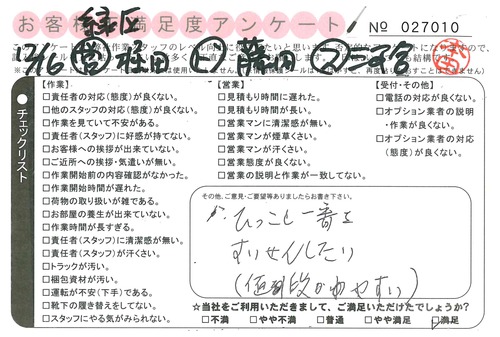 お客様満足度アンケート
緑区
№ 027010
12/6
チェックリスト
【作業】
□責任者の対応(態度)が良くない。
□他のスタッフの対応(態度)が良くない。
□作業を見ていて不安がある。
□責任者(スタッフ)に好感が持てない。
□お客様への挨拶が出来ていない。
□ご近所への挨拶・気遣いが無い。
□作業開始前の内容確認がなかった。
□作業開始時間が遅れた。
□荷物の取り扱いが雑である。
□お部屋の養生が出来ていない。
□作業時間が長すぎる。
□責任者(スタッフ)に清潔感が無い。
□責任者(スタッフ)が汗くさい。
□トラックが汚い。
□梱包資材が汚い。
□運転が不安(下手)である。
□靴下の履き替えをしてない。
□スタッフにやる気がみられない。
【営業】
□見積もり時間に遅れた。
□見積もり時間が長い。
□営業マンに清潔感が無い。
□営業マンが煙草くさい。
□営業マンが汗くさい。
□営業態度が良くない。
□営業の説明と作業が一致してない。
【受付・その他】
□電話の対応が良くない。
□オプション業者の説明
・作業が良くない。
□オプション業者の対応
(態度)が良くない。
その他、ご意見・ご要望等ありましたらお書き下さい。
ひっこし一番を
すいせんしたい
(値段がわかりやすい)
☆当社をご利用いただきまして、ご満足いただけたでしょうか?
□不満 □やや不満 □普通 □やや満足 □満足